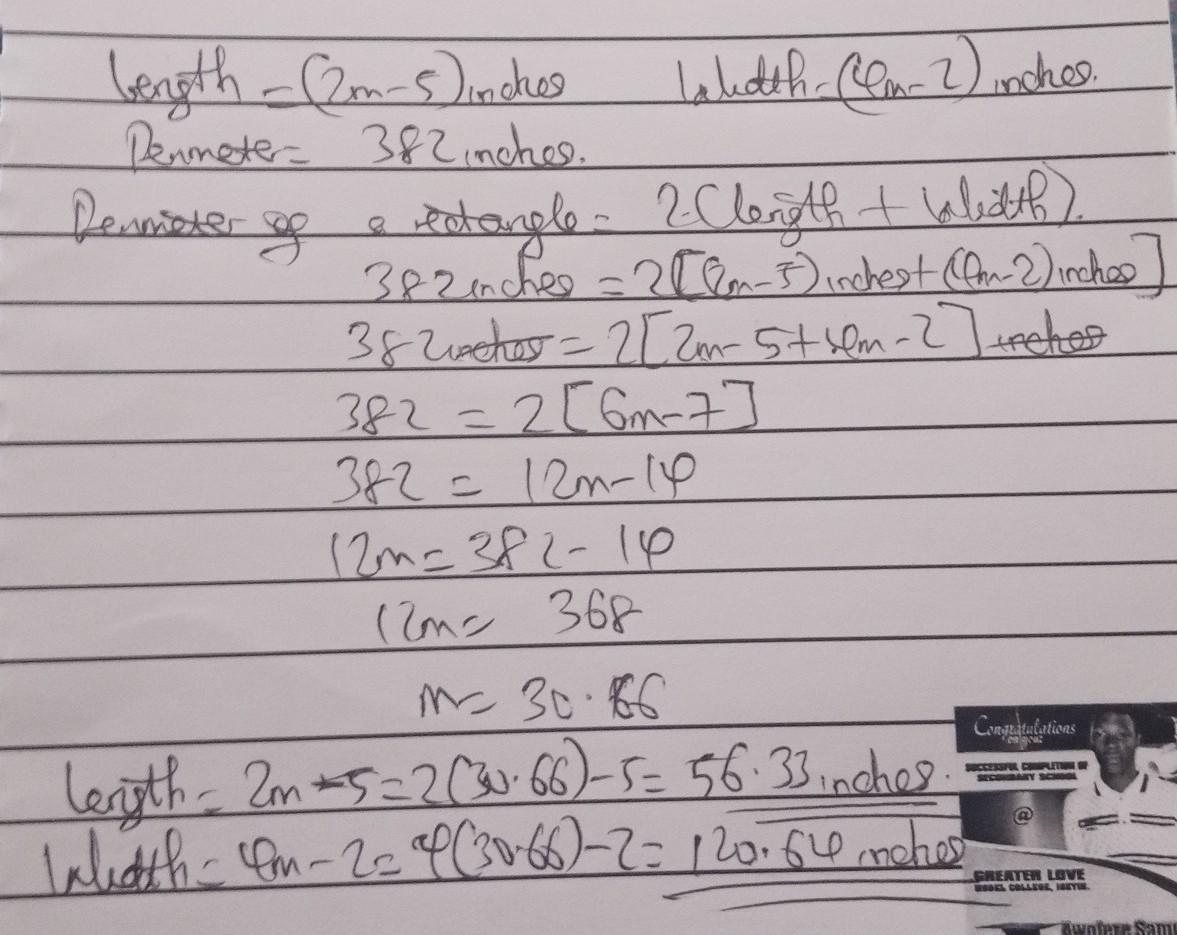 Length = (2m-5)inches Width = (4m-2)inches.
Perimeter = 382 inches.
Perimeter of a rectangle = 2(length + Width).
382 inches = 2[(2m-5)inches + (4m-2)inches]
382 inches = 2[2m-5+4m-2] inches
382 = 2[6m-7]
382 = 12m-14
12m = 382-14
12m = 368
m = 30.66
Length = 2m-5 = 2(30.66)-5 = 56.33 inches.
Width = 4m-2 = 4(30.66)-2 = 120.64 inches
Congratulations
on your
SUCCESSFUL COMPLETION OF
SECONDARY SCHOOL
@
GREATER LOVE
MODEL COLLEGE,